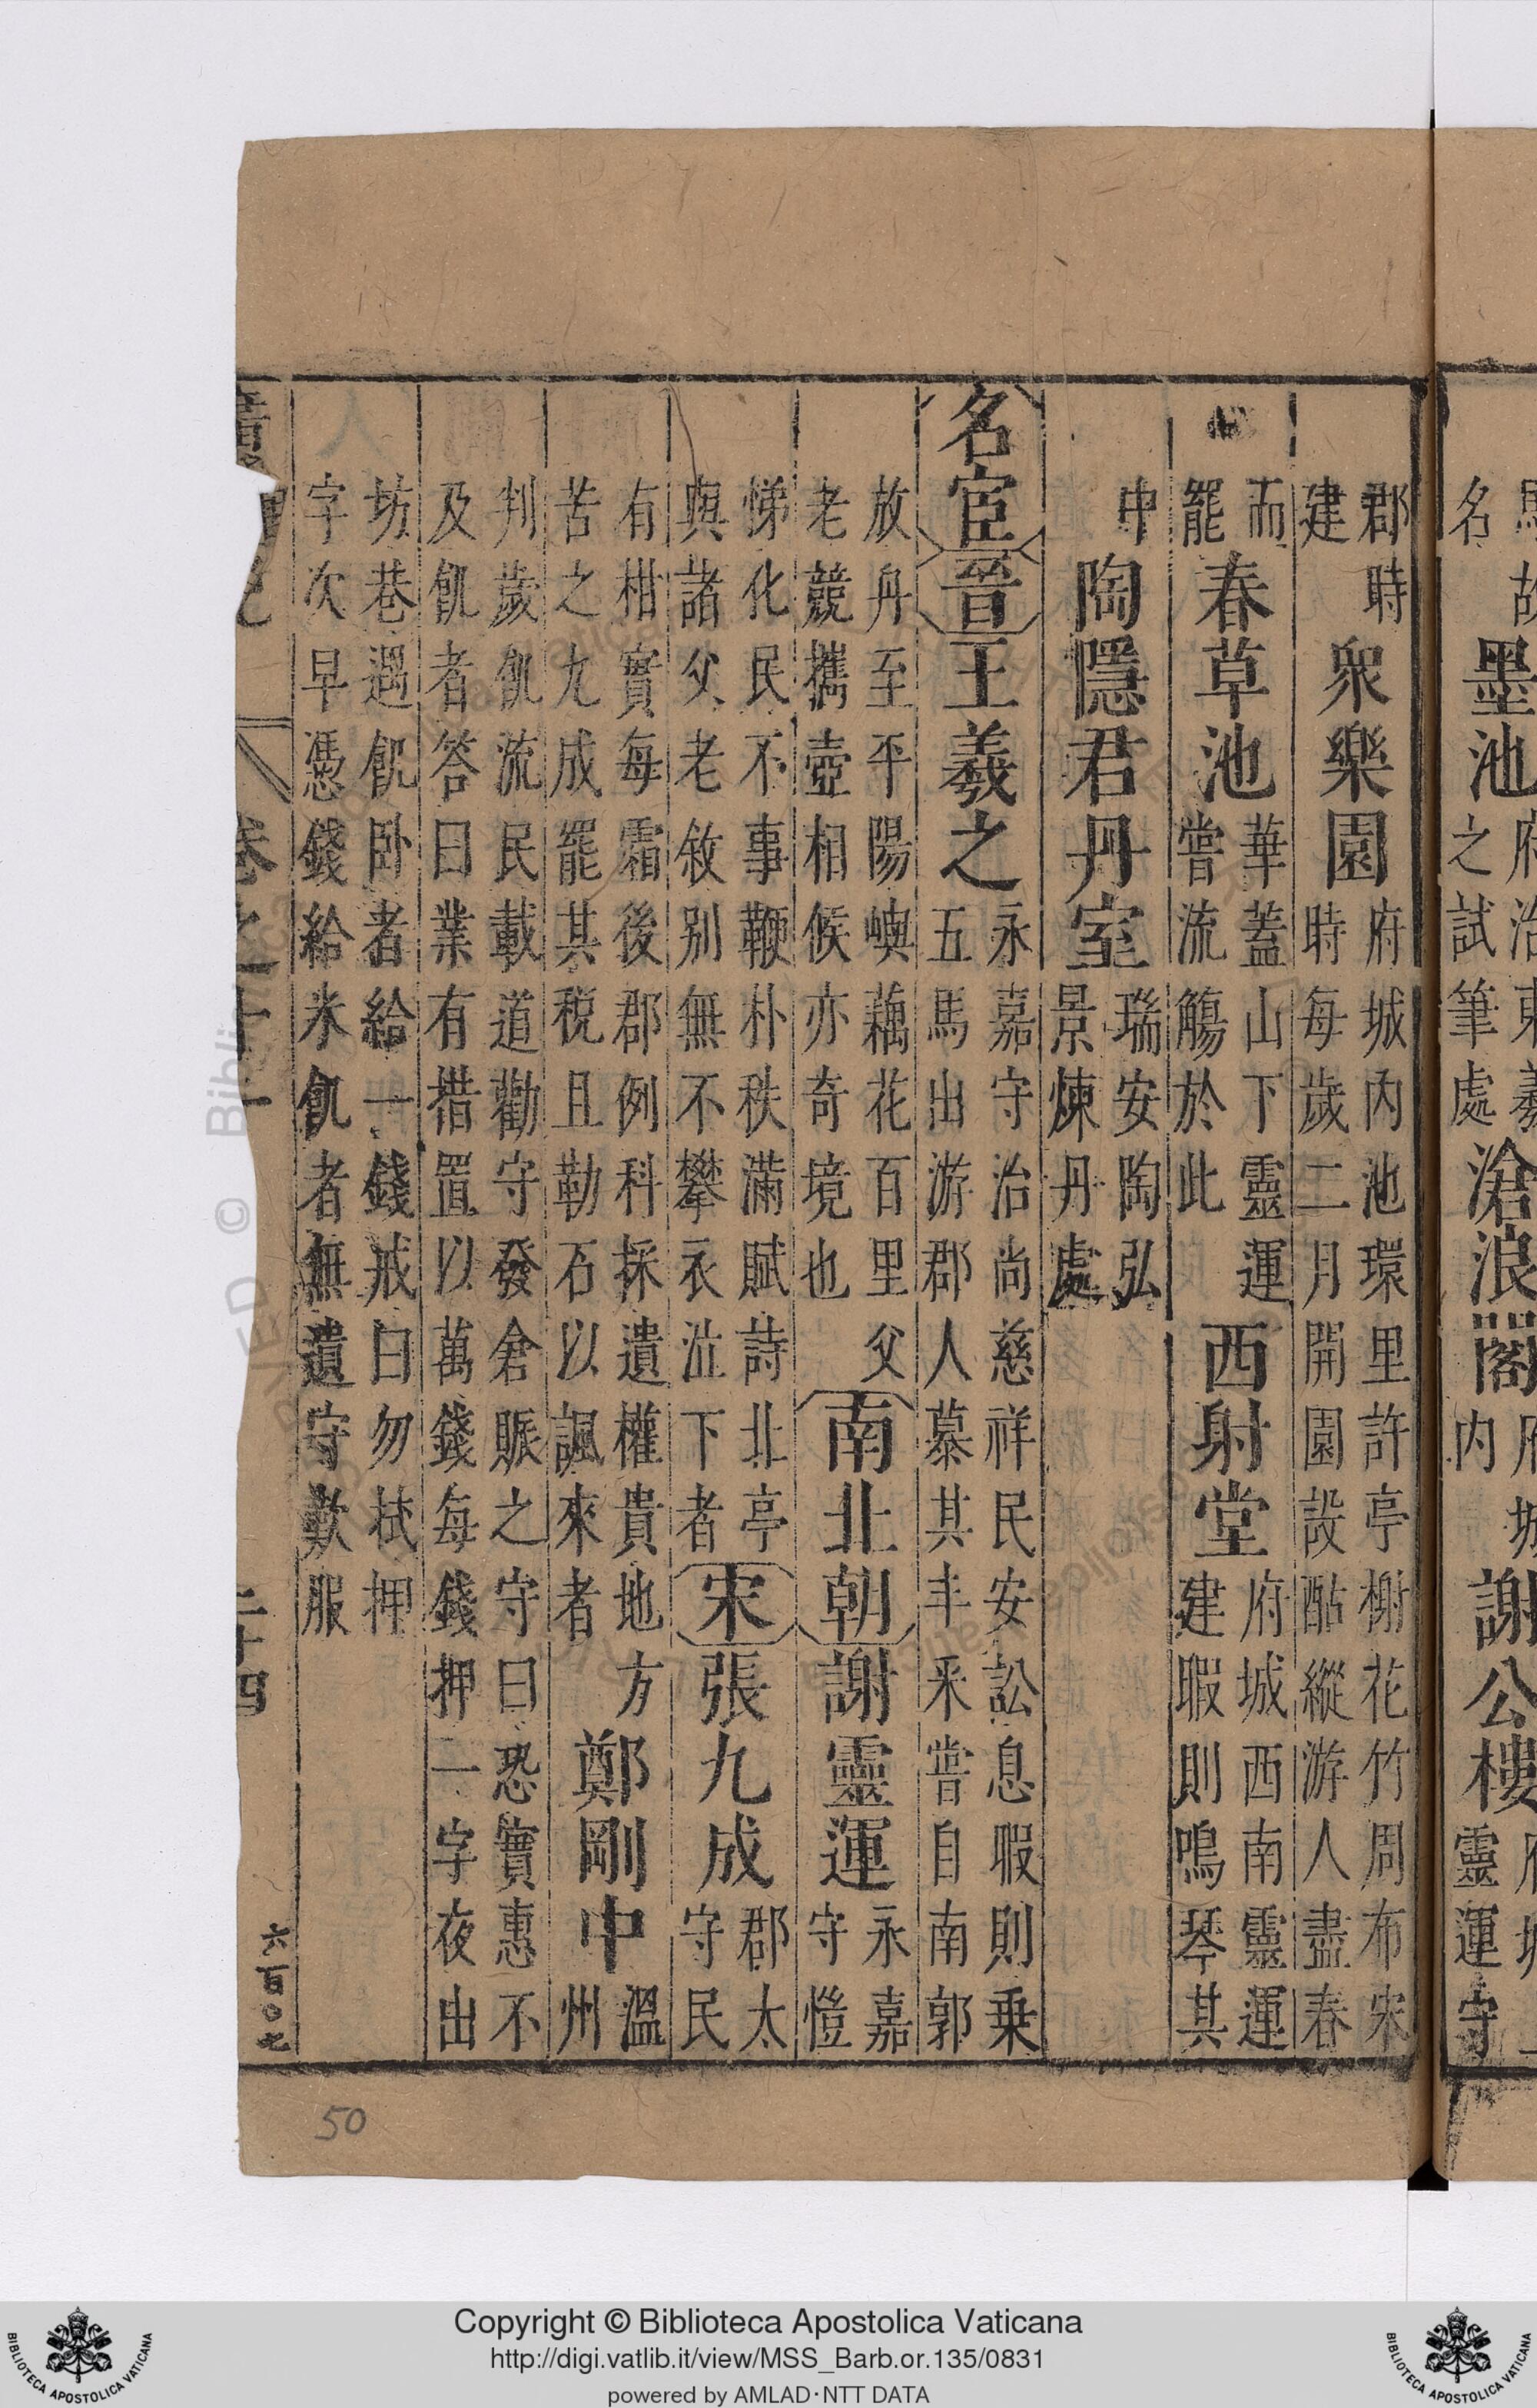 名墨池之試筆處滄浪閣内謝公樓靈運守
郡時建眾樂園府城内池環里許亭榭花竹周布宋時每歲二月開園設酤縱游人盡春
而罷春草池華蓋山下靈運嘗流觴於此西射堂府城西南靈運建暇則鳴琴其
中陶隱君丹室瑞安陶弘景煉丹處
名宦晉王羲之永嘉守治尚慈祥民安訟息暇則乗五馬出游郡人慕其丰采嘗自南郭
放舟至平陽嶼藕花百里父老競攜壺相候亦奇境也南北朝謝靈運永嘉守愷
悌化民不事鞭朴秩滿賦詩北亭與諸父老敘别無不攀衣泣下者宋張九成郡太守民
有柑實每霜後郡例科採遺權貴地方苦之九成罷其税且勒石以諷來者鄭剛中溫州
判歲飢流民載道勸守發倉賑之守曰恐實惠不及飢者答曰業有措置以萬錢每錢押一字夜出
坊巷遇飢卧者給一錢戒曰勿拭押字次早憑錢給米飢者無遺守歎服
卷之十一 二十四 六百〇七
50
Copyright © Biblioteca Apostolica Vaticana
http://digi.vatlib.it/view/MSS_Barb.or.135/0831
powered by AMLAD·NTT DATA
BIBLIOTECA APOSTOLICA VATICANA
BIBLIOTECA APOSTOLICA VATICANA